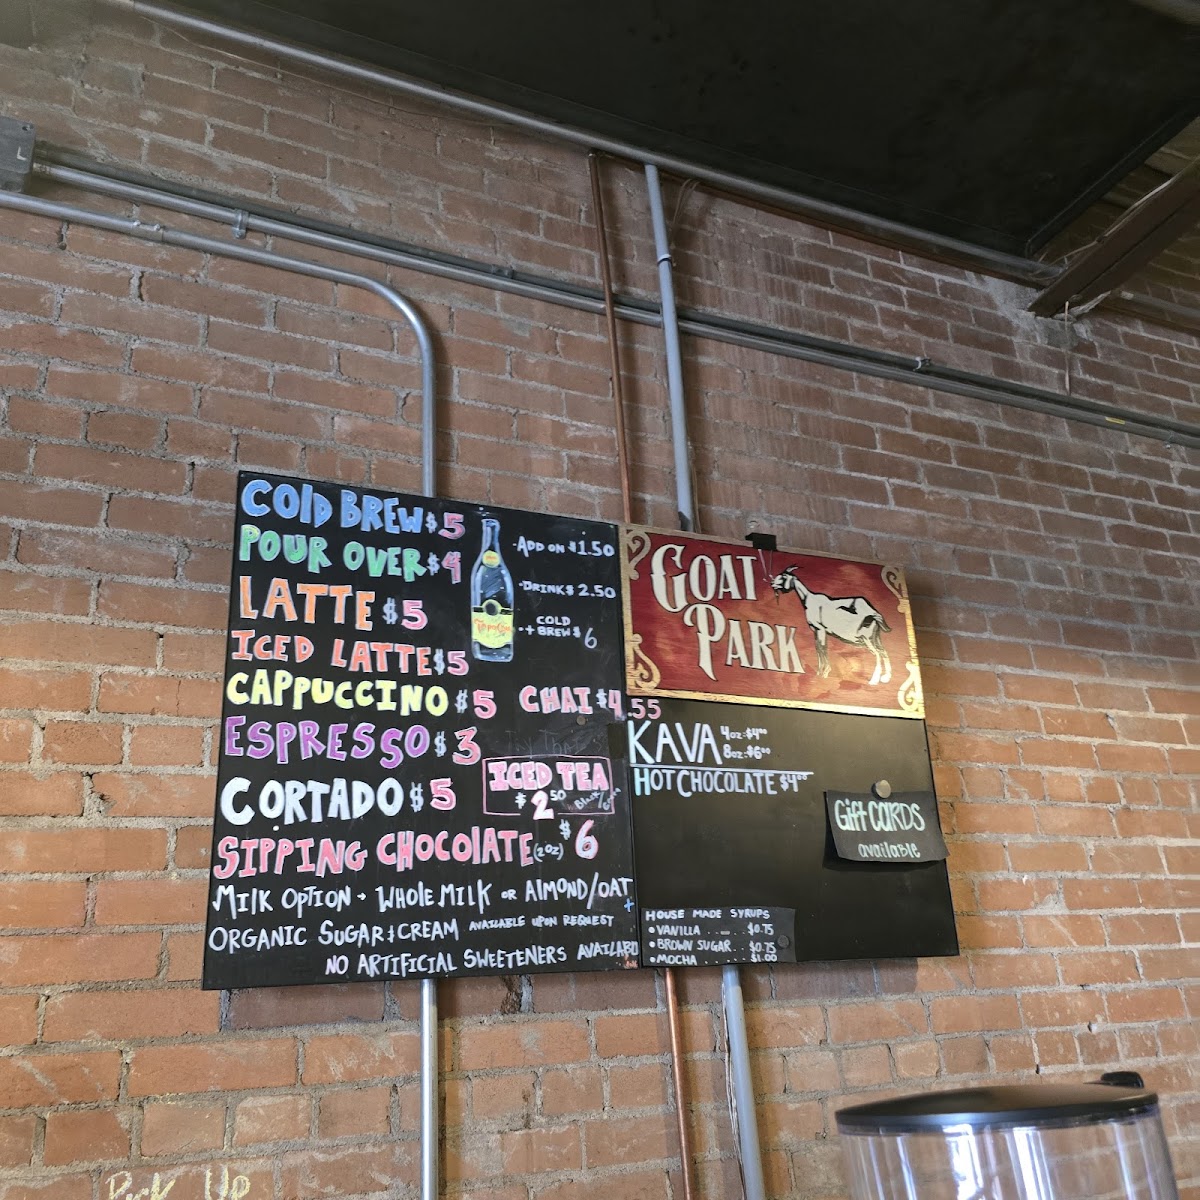 COLD BREW $5
POUR OVER $4
LATTE $5
ICED LATTE $5
CAPPUCCINO $5
ESPRESSO $3
CORTADO $5
SIPPING CHOCOLATE (2oz) $6
MILK OPTION - WHOLE MILK OR ALMOND/OAT
ORGANIC SUGAR & CREAM AVAILABLE UPON REQUEST
NO ARTIFICIAL SWEETENERS AVAILABLE
Topo Chico
-ADD ON $1.50
-DRINK $2.50
-+ COLD
BREW $6
CHAI $4.55
ICED TEA
$2.50
GOAT
PARK
KAVA 4oz-$4.00
8oz-$6.00
HOT CHOCOLATE $4.00
Gift CARDS
available
HOUSE MADE SYRUPS
•VANILLA ..... $0.75
•BROWN SUGAR... $0.75
•MOCHA ...... $1.00
Pick Up